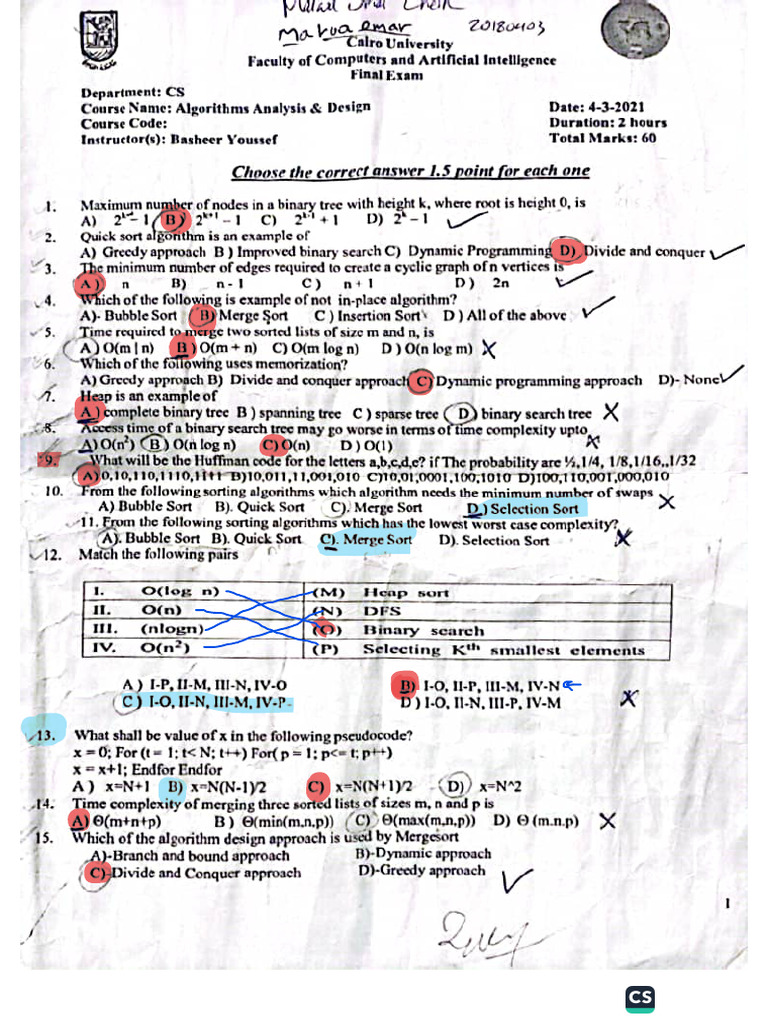 Marwa omar 20180403
Cairo University
Faculty of Computers and Artificial Intelligence
Final Exam
Department: CS
Course Name: Algorithms Analysis & Design Date: 4-3-2021
Course Code: Duration: 2 hours
Instructor(s): Basheer Youssef Total Marks: 60
Choose the correct answer 1.5 point for each one
1. Maximum number of nodes in a binary tree with height k, where root is height 0, is
A) 2^k – 1 B) 2^k+1 – 1 C) 2^k-1 + 1 D) 2^k – 1
2. Quick sort algorithm is an example of
A) Greedy approach B ) Improved binary search C) Dynamic Programming D) Divide and conquer
3. The minimum number of edges required to create a cyclic graph of n vertices is
A ) n B) n - 1 C ) n + 1 D ) 2n
4. Which of the following is example of not in-place algorithm?
A)- Bubble Sort B) Merge Sort C ) Insertion Sort D ) All of the above
5. Time required to merge two sorted lists of size m and n, is
A ) O(m | n) B ) O(m + n) C) O(m log n) D ) O(n log m)
6. Which of the following uses memorization?
A) Greedy approach B) Divide and conquer approach C) Dynamic programming approach D)- None
7. Heap is an example of
A ) complete binary tree B ) spanning tree C ) sparse tree D ) binary search tree
8. Access time of a binary search tree may go worse in terms of time complexity upto
A) O(n²) B ) O(n log n) C) O(n) D ) O(1)
9. What will be the Huffman code for the letters a,b,c,d,e? if The probability are ½,1/4, 1/8,1/16,,1/32
A)0,10,110,1110,1111 B)10,011,11,001,010 C)10,01,0001,100,1010 D)100,110,001,000,010
10. From the following sorting algorithms which algorithm needs the minimum number of swaps
A) Bubble Sort B). Quick Sort C). Merge Sort D.) Selection Sort
11. From the following sorting algorithms which has the lowest worst case complexity?
A). Bubble Sort B). Quick Sort C). Merge Sort D). Selection Sort
12. Match the following pairs
I. O(log n) (M) Heap sort
II. O(n) (N) DFS
III. (nlogn) (O) Binary search
IV. O(n²) (P) Selecting Kth smallest elements
A ) I-P, II-M, III-N, IV-O B) I-O, II-P, III-M, IV-N
C ) I-O, II-N, III-M, IV-P D ) I-O, II-N, III-P, IV-M
13. What shall be value of x in the following pseudocode?
x = 0; For (t = 1; t< N; t++) For( p = 1; p<= t; p++)
x = x+1; Endfor Endfor
A ) x=N+1 B) x=N(N-1)/2 C) x=N(N+1)/2 D) x=N^2
14. Time complexity of merging three sorted lists of sizes m, n and p is
A) Θ(m+n+p) B ) Θ(min(m,n,p)) C) Θ(max(m,n,p)) D) Θ (m.n.p)
15. Which of the algorithm design approach is used by Mergesort
A)-Branch and bound approach B)-Dynamic approach
C)-Divide and Conquer approach D)-Greedy approach
1
CS